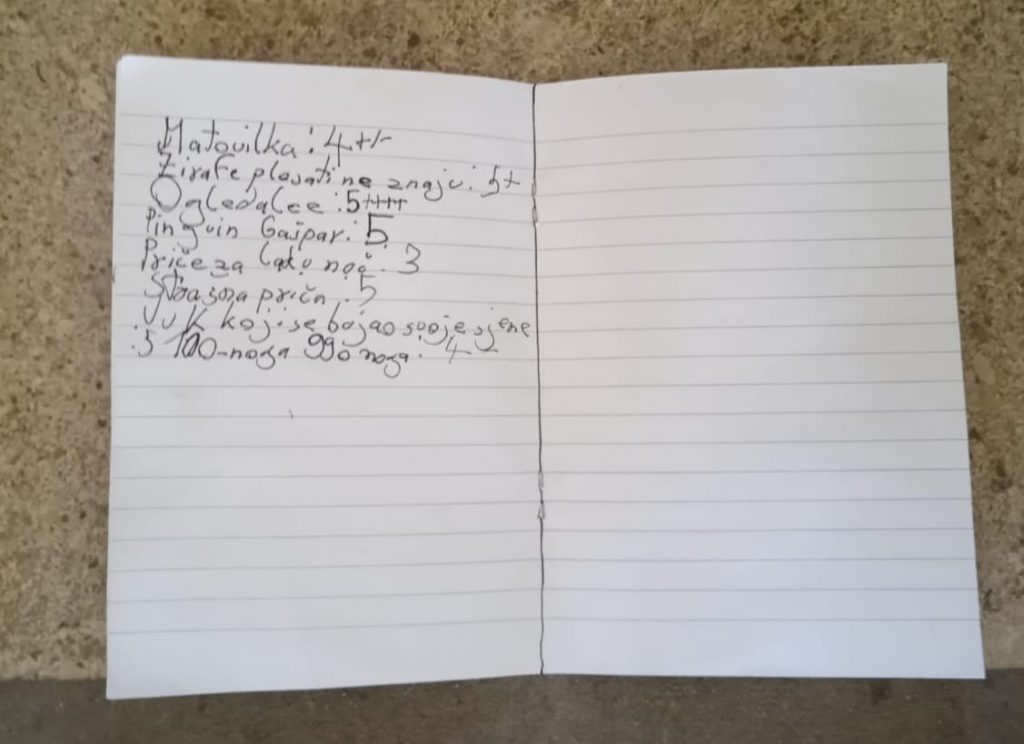 Matovilka : 4 +/-
Žirafe plesati ne znaju : 5+
Ogledalce : 5++++
Pinguin Gašpar : 5
Priče za laku noć : 3
Strašna priča : 5
Vuk koji se bojao svoje sjene
: 5 100-noga 990 noga : 4